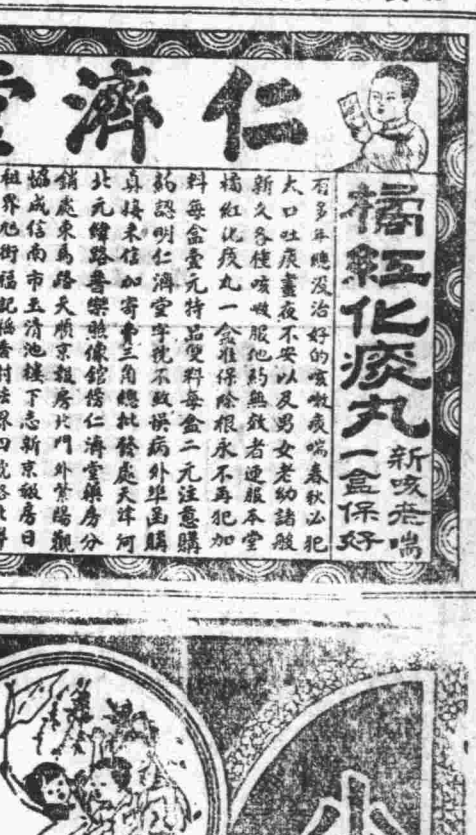 仁濟堂
橘紅化痰丸
新咳老喘
一盒保好
有多年總沒治好的咳嗽痰喘春秋必犯
大口吐痰晝夜不安以及男女老幼諸般
新久各種咳嗽服他药無效者速服本堂
橘紅化痰丸一盒准保除根永不再犯加
料每盒壹元特品雙料每盒二元注意購
药認明仁濟堂字號不致误病外埠函購
真接來信加寄費三角總批發處天津河
北元緯路魯樂照像舘傍仁濟堂藥房分
銷處東馬路天順京報房北門外紫陽觀
協成信南市玉清池樓下志新京報房日
租界旭街福記稻香村法界四
小